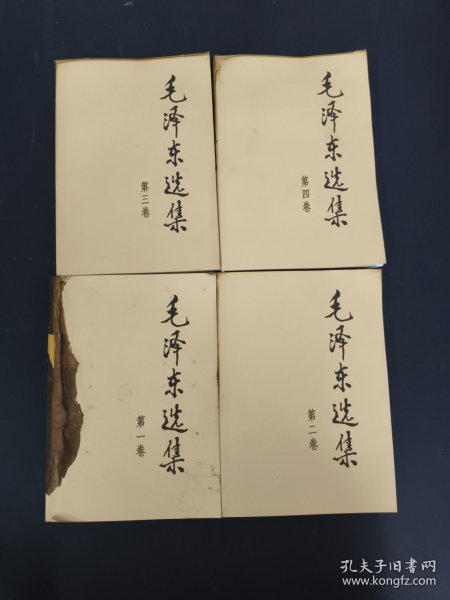 毛泽东选集
第三卷
毛泽东选集
第四卷
毛泽东选集
第一卷
毛泽东选集
第二卷
孔夫子旧书网
www.kongfz.com